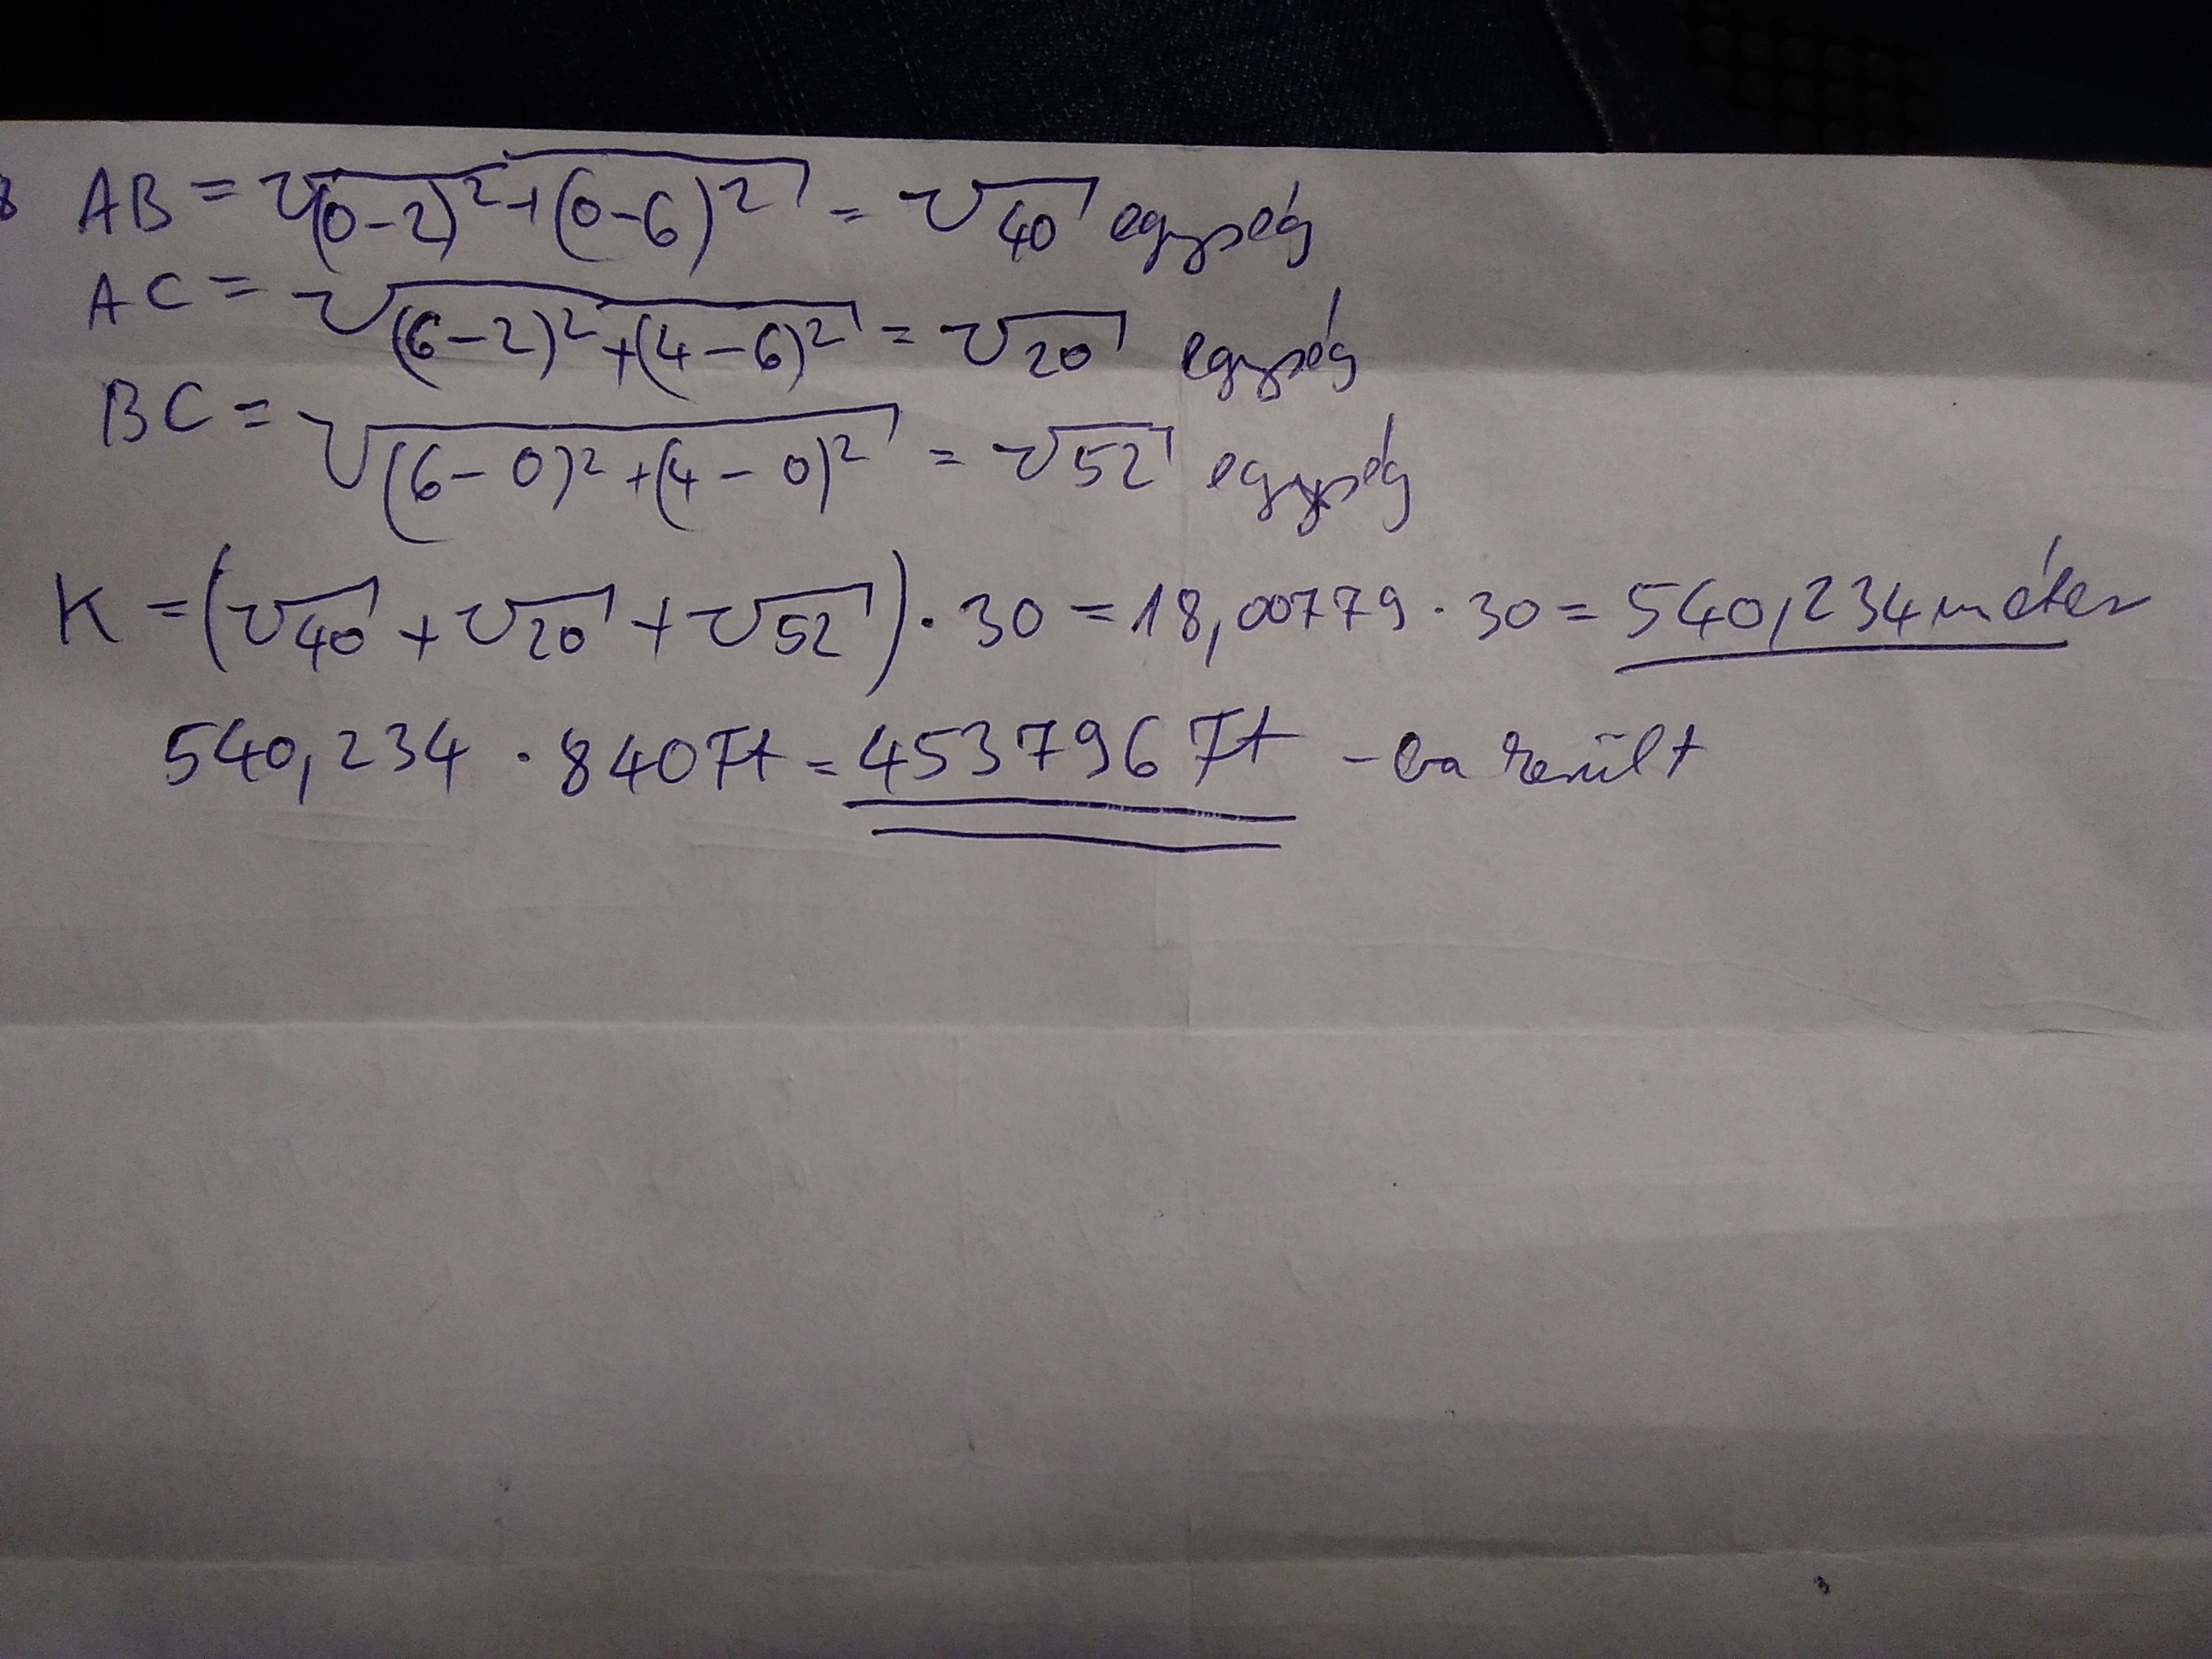 AB = √(0-2)²+(0-6)² = √40 egység
AC = √(6-2)²+(4-6)² = √20 egység
BC = √(6-0)²+(4-0)² = √52 egység
K = (√40 + √20 + √52) · 30 = 18,00779 · 30 = 540,234 méter
540,234 · 840 Ft = 453796 Ft -ba került